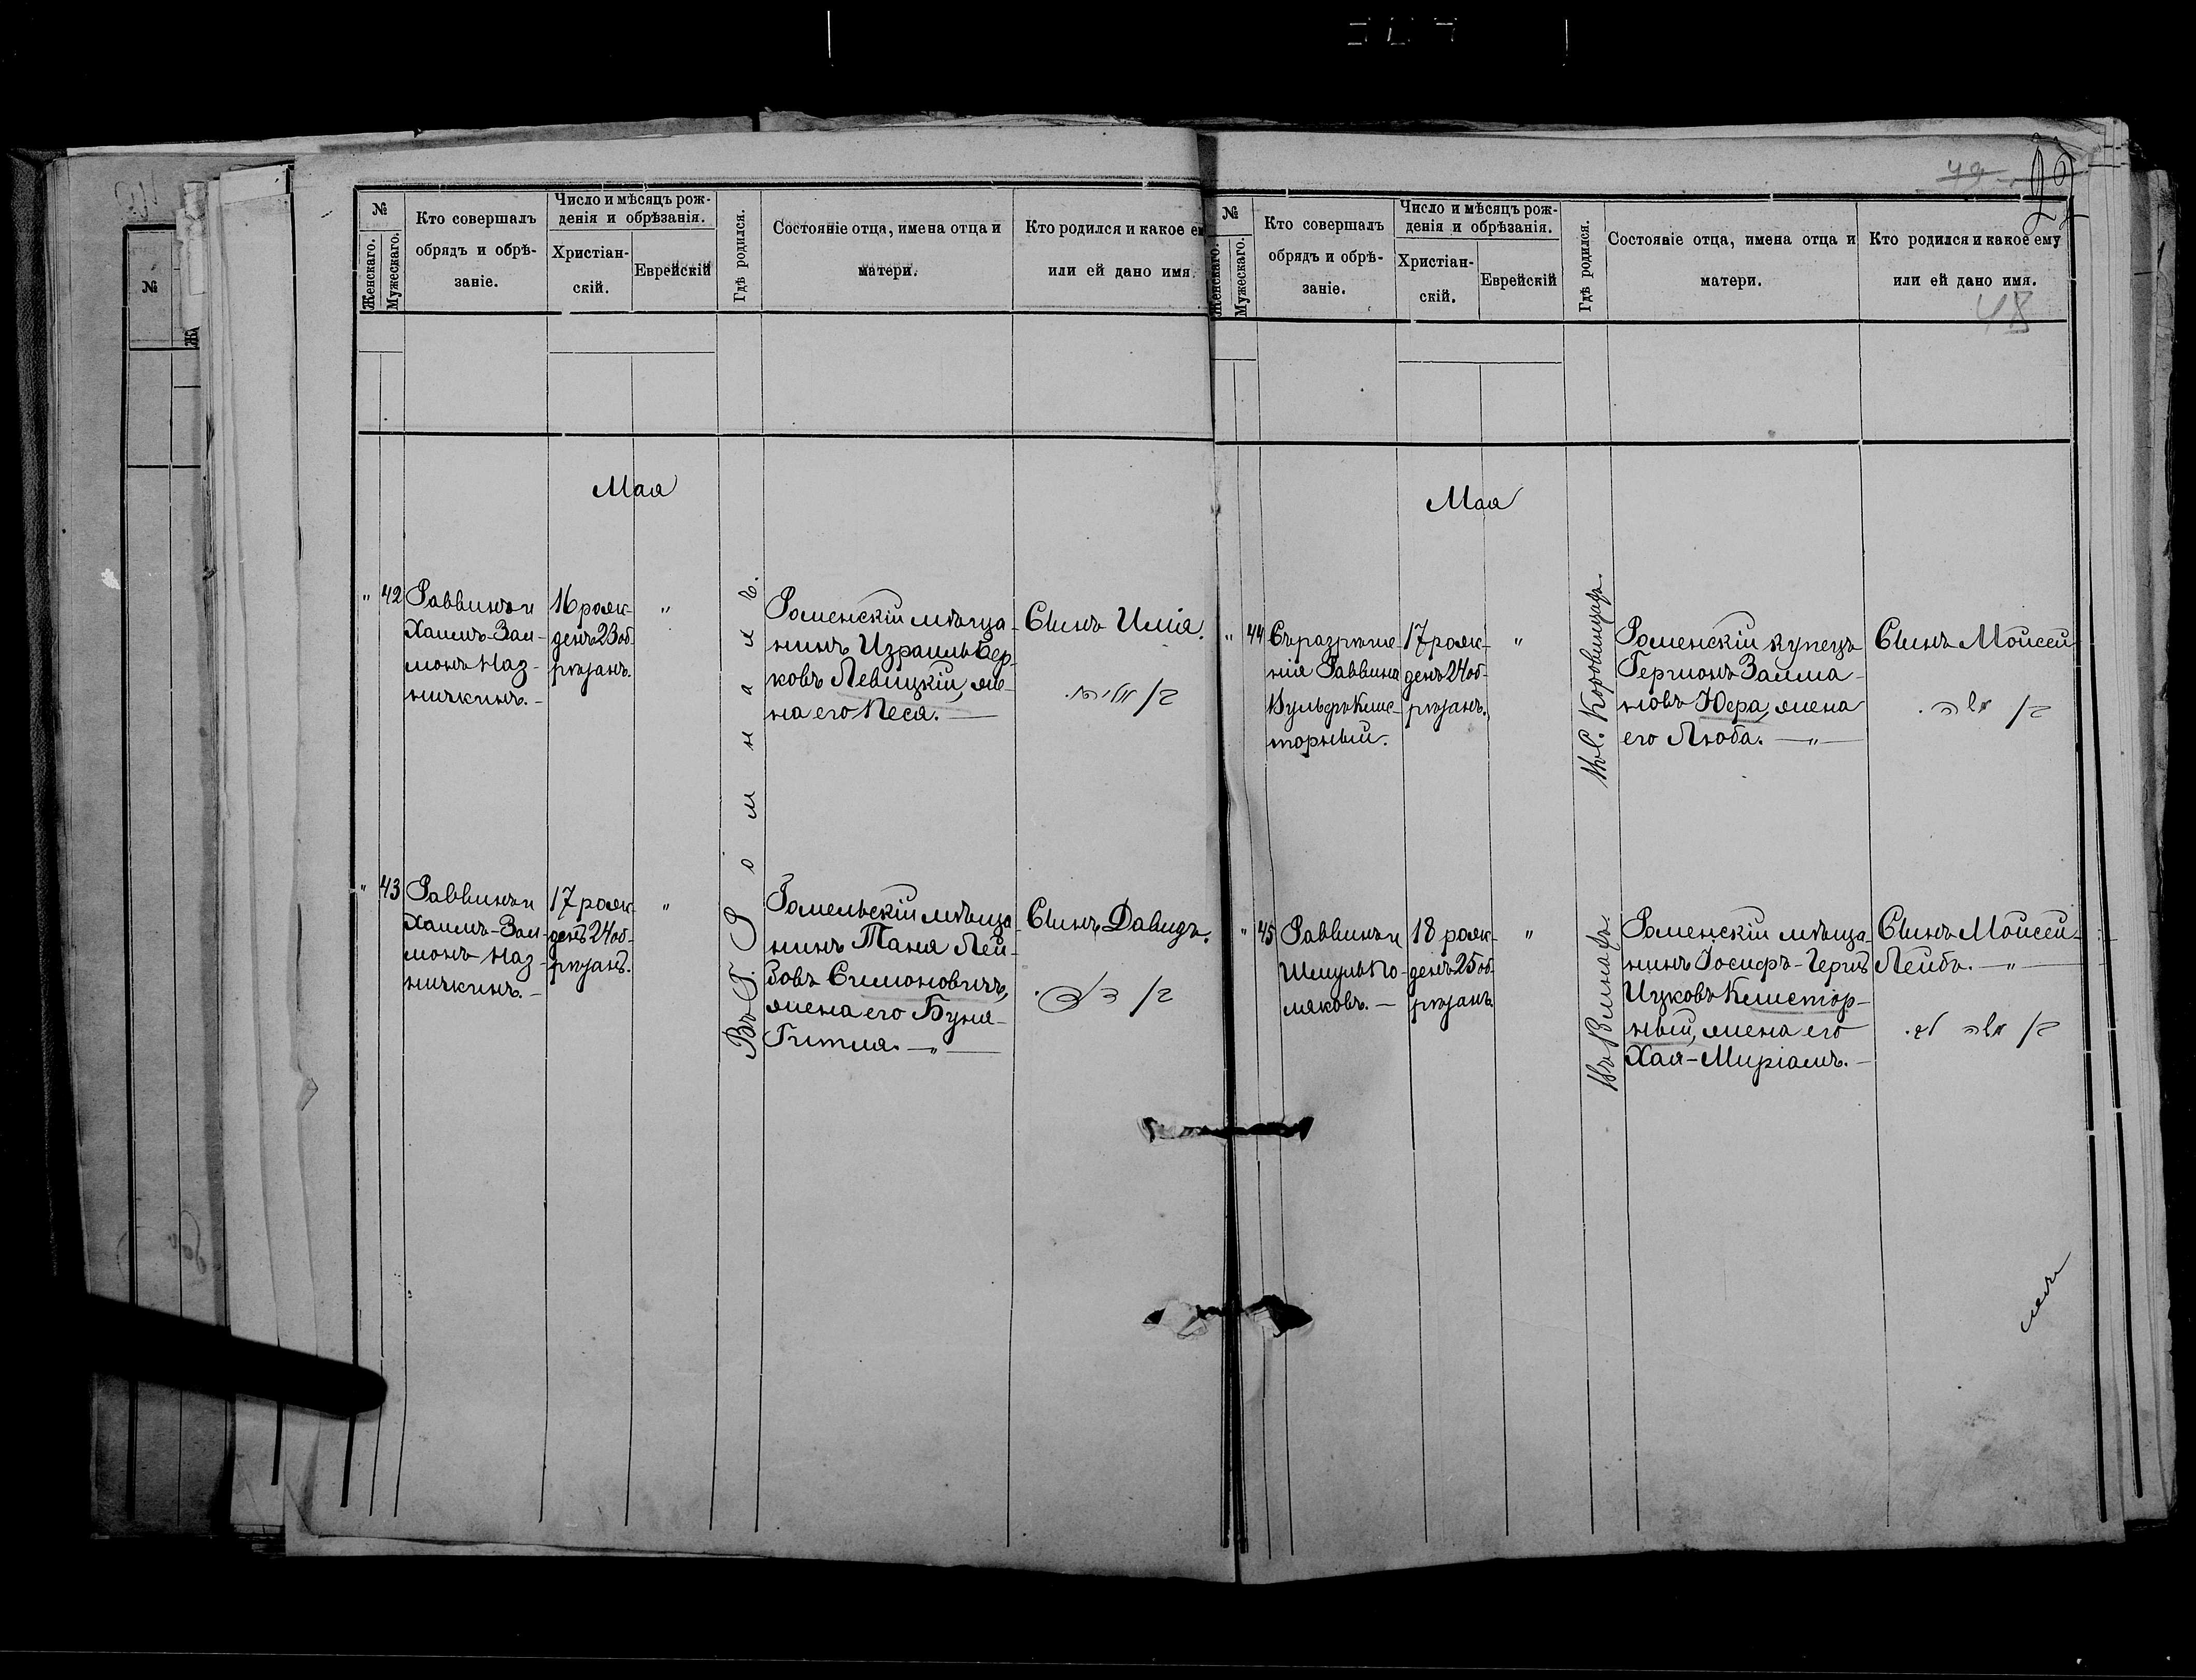 №
Женскаго.
Мужескаго.
Кто совершалъ
обрядъ и обрѣ-
заніе.
Число и мѣсяцъ рож-
денія и обрѣзанія.
Христіан-
скій.
Еврейскій
Гдѣ родился.
Состояніе отца, имена отца и
матери.
Кто родился и какое ему
или ей дано имя.
Мая
" 42
Раввинъ и
Хаимъ-Зал-
монъ Наз-
ничкинъ.-
16 рожс-
денъ 23 об-
рѣзанъ.
"
Роменскій мѣща-
нинъ Израиль Бер-
ковъ Левицкій, же-
на его Песя. —
Сынъ Илія.
ז/ אליהו.
" 43
Раввинъ и
Хаимъ-Зал-
монъ Наз-
ничкинъ.-
17 рож-
денъ 24 об-
рѣзанъ.
"
Въ Г. Ромнахъ.
Гомельскій мѣща-
нинъ Таня Лей-
бовъ Симоновичъ,
жена его Буня-
Гитля. —"—
Сынъ Давидъ.
ז/ דוד.
49
48
№
Женскаго.
Мужескаго.
Кто совершалъ
обрядъ и обрѣ-
заніе.
Число и мѣсяцъ рож-
денія и обрѣзанія.
Христіан-
скій.
Еврейскій
Гдѣ родился.
Состояніе отца, имена отца и
матери.
Кто родился и какое ему
или ей дано имя.
Мая
" 44
Съ разрѣше-
нія Раввина
Вульфъ Клис-
торный.
17 рож-
денъ 24 об-
рѣзанъ.
"
Роменскій купецъ
Гершонъ Залма-
новъ Юера, жена
его Люба. —"—
Сынъ Мойсей
ז/ משה.
" 45
Раввинъ и
Шмуль По-
ляковъ. —
18 рож-
денъ 25 об-
рѣзанъ.
"
Роменскій мѣща-
нинъ Іосифъ-Герцъ
Ицковъ Клистор-
ный, жена его
Хая-Миріамъ.-
Сынъ Мойсей-
Лейбъ. —"—
ז/ משה